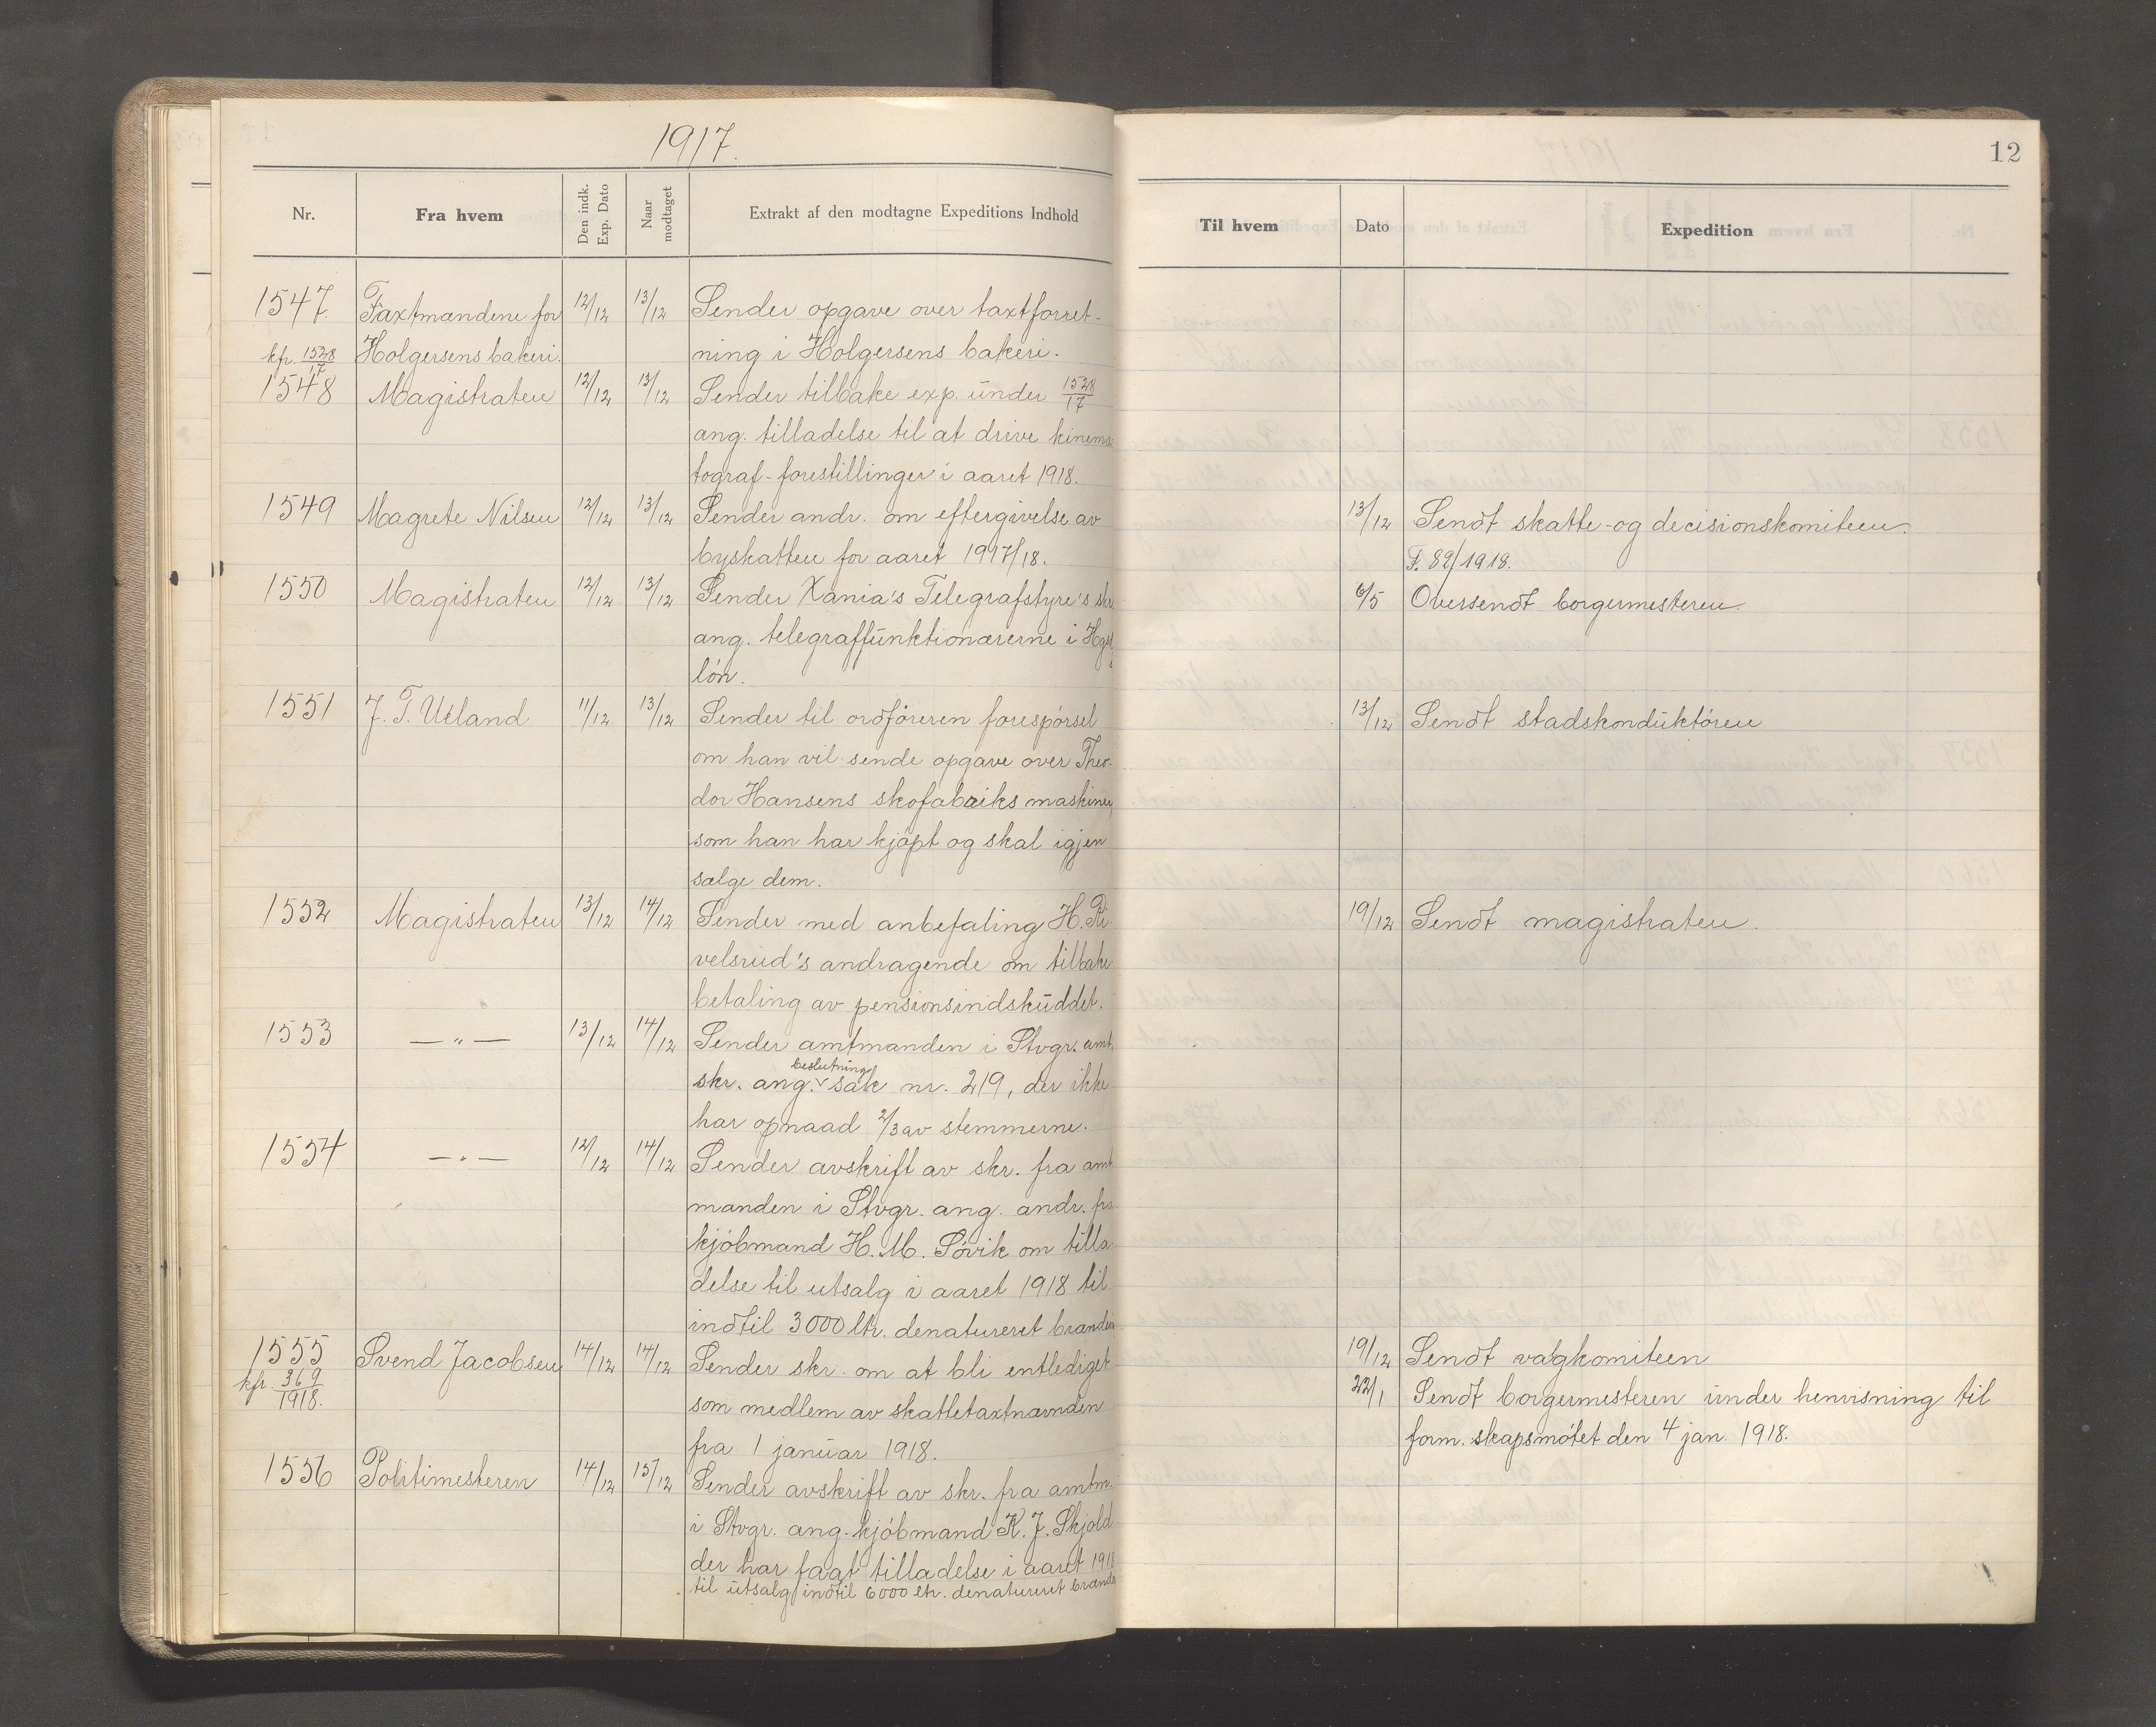 1917.
12
Nr.
Fra hvem
Den indk. Exp. Dato
Naar modtaget
Extrakt af den modtagne Expeditions Indhold
Til hvem
Dato
Expedition
1547. Taxtmændene for 12/12 13/12 Sender opgave over taxtforret-
kfr. 1528/17 Holgersens bakeri. ning i Holgersens bakeri.
1548 Magistraten 12/12 13/12 Sender tilbake exp. under 1528/17
ang. tilladelse til at drive kinema
tograf-forestillinger i aaret 1918.
1549 Magrete Nilsen 12/12 13/12 Sender andr. om eftergivelse av 13/12 Sendt skatte- og decisionskomiteen.
byskatten for aaret 1917/18. F. 82/1918.
1550 Magistraten 12/12 13/12 Sender Xania's Telegrafstyre's skr. 6/5 Oversendt borgermesteren.
ang. telegraffunktionærerne i
løn.
1551 J. T. Ueland 11/12 13/12 Sender til ordføreren forespørsel 13/12 Sendt stadskonduktøren
om han vil sende opgave over Theo-
dor Hansens skofabriks maskiner
som han har kjøpt og skal igjen
sælge dem.
1552 Magistraten 13/12 14/12 Sender med anbefaling H. Ri- 19/12 Sendt magistraten.
velsrud's andragende om tilbake
betaling av pensionsindskuddet.
1553 — „ — 13/12 14/12 Sender amtmanden i Stvgr. amt
skr. ang. beslutning sak nr. 219, der ikke
har opnaad 2/3 av stemmerne.
1554 — „ — 12/12 14/12 Sender avskrift av skr. fra amt
manden i Stvgr. ang. andr. fra
kjøbmand H. M. Søvik om tilla-
delse til utsalg i aaret 1918 til
indtil 3000 ltr. denatureret
1555 Svend Jacobsen 14/12 14/12 Sender skr. om at bli entlediget 19/12 Sendt valgkomiteen
kfr. 369/1918. som medlem av skattetaxtnævnden 22/1 Sendt borgermesteren under henvisning til
fra 1 januar 1918. form.skapsmøtet den 4 jan. 1918.
1556 Politimesteren 14/12 15/12 Sender avskrift av skr. fra amtm.
i Stvgr. ang. kjøbmand K. J. Skjold
der har faat tilladelse i aaret 1918
til utsalg indtil 6000 ltr. denatureret